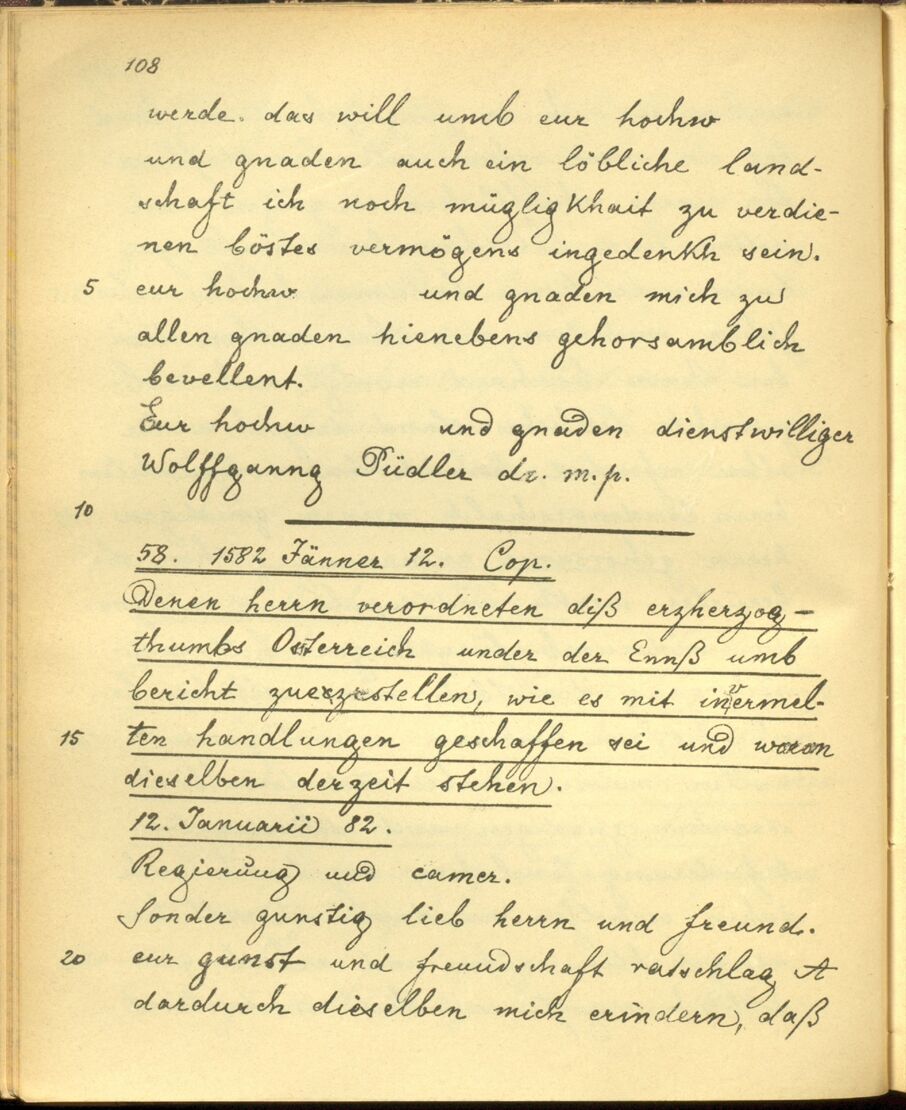 108
werde. das will umb eur hochw
und gnaden auch ein löbliche land-
schaft ich noch mügligkhait zu verdie-
nen böstes vermögens ingedenkh sein.
5 eur hochw und gnaden mich zu
allen gnaden hienebens gehorsamblich
bevellent.
Eur hochw und gnaden dienstwilliger
Wolffganng Püdler dr. m.p.
10
58. 1582 Jänner 12. Cop.
Denen herrn verordneten diß erzherzog-
thumbs Osterreich under der Ennß umb
bericht zuezestellen, wie es mit invermel-
15 ten handlungen geschaffen sei und woran
dieselben derzeit stehen.
12. Januarii 82.
Regierung und camer.
Sonder gunstig lieb herrn und freund.
20 eur gunst und freundschaft ratschlag A
dardurch dieselben mich erindern, daß